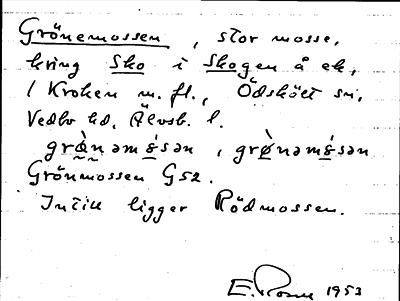 Grönemossen, stor mosse,
kring Sko i Skogen å ek,
/ Kroken m. fl., Ödsköлt sn,
Vedbo hd, Älvsb. l.
grö̀nəmósən, grö̀nəmósən
Grönmossen G52.
Intill ligger Rödmossen.
1953